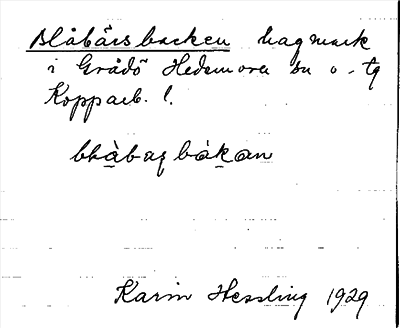 Blåbärsbacken hagmark
i Grådö Hedemora sn o. tg
Kopparb. l.
blàbaʒbákan
Karin Hessling 1929